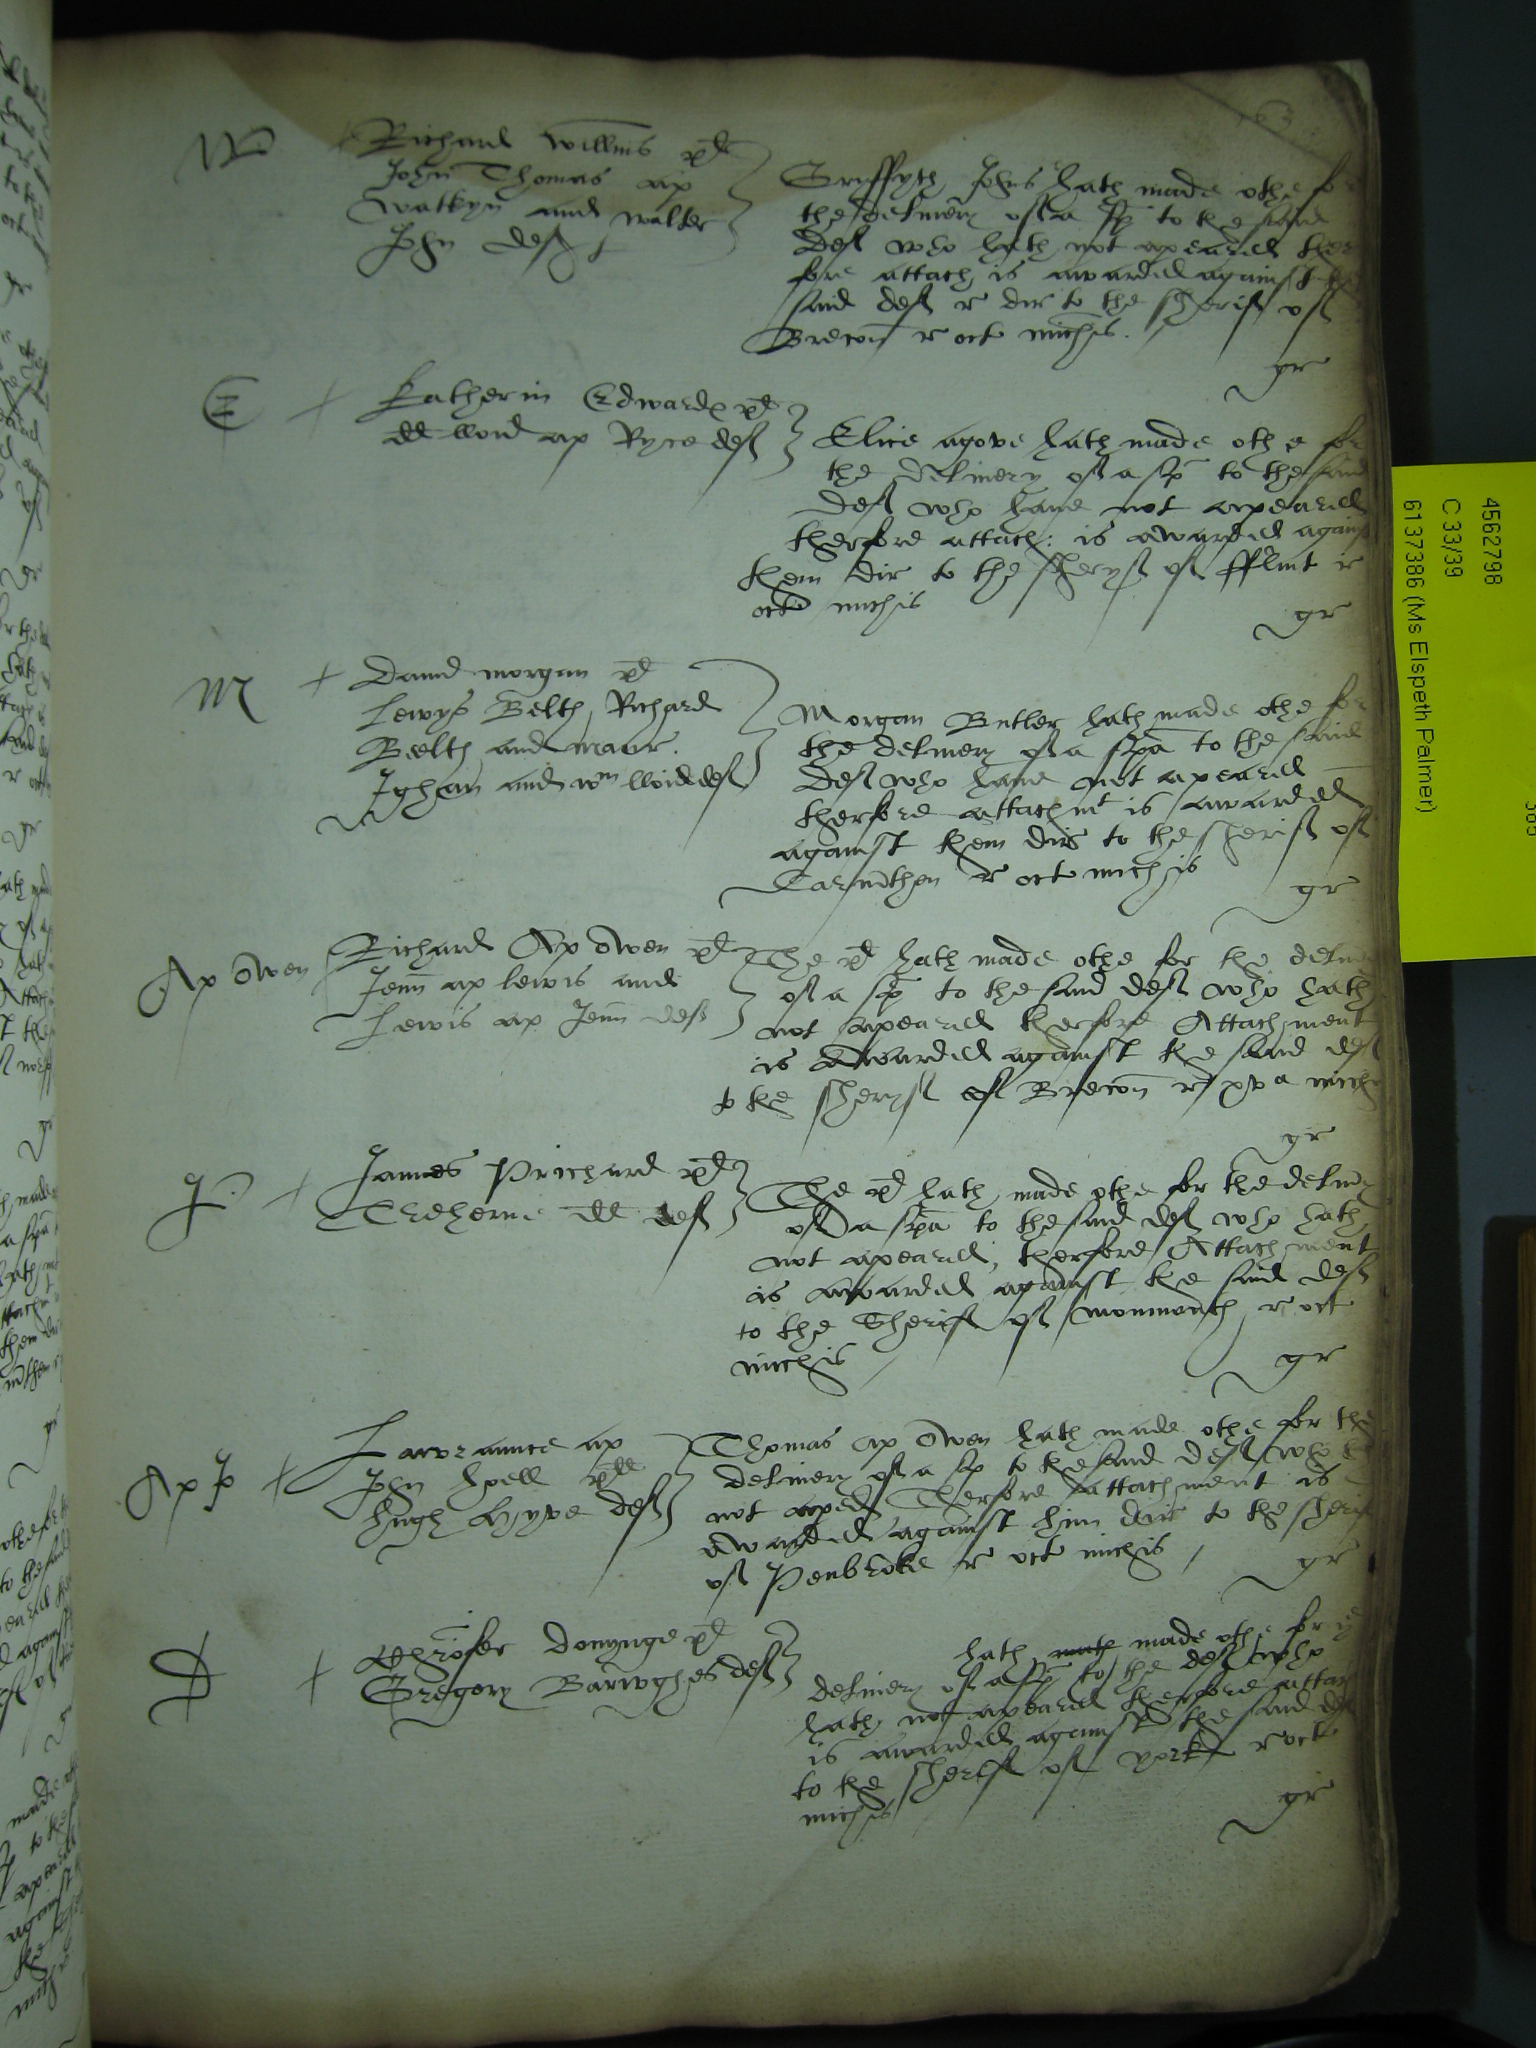 W
Richard Willms pl
John Thomas ap
Watkyn and Walter
John def
Gruffyth Johns hath made othe for
the delivery of a sp to the said
def who hath not apeared ther
fore attach is awarded against the
said def r dir to the sherif of
Brecon r oct michis.
gr
E
Katherin Edwards pl
dd lloid ap Ryce def
Elice hath made othe for
the delivery of a sp to the said
def who have not apeared
therfore attach: is awarded against
them dir to the sheryf of fflint r
oct michis
gr
M
David morgan pl
Lewys Belth Richard
Beelth and
and Wm lloid def
Morgan Butler hath made othe for
the delivery of a spa to the said
def who have not apeared
therfore attachmt is awarded
against them dir to the sherif of
Carmthen r oct michis
gr
Ap Owen
Richard Ap Owen pl
Jenn ap lewis and
Lewis ap Jenn def
The pl hath made othe for the delivery
of a sp to the said def who hath
not apeared therfore Attachment
is awarded against the said def
to the sheryf of Brecon r michis
gr
P
James Prichard pl
Treherne dd def
The pl hath made othe for the delivery
of a spa to the said def who hath
not apeared, therfore Attachment
is awarded against the said def
to the Sherif of monmouth r oct
michis
gr
Ap J
Lawraunce ap
John hoell pll
hugh def
Thomas ap Owen hath made othe for the
delivery of a sp to the said def who
not aped Therfore attachment is
awarded against him dir to the sherif
of Penbroke r oct michis
gr
D
Chrofer Donynge pl
Gregory def
hath made othe for ye
delivery of a sp to the def who
hath not apeared therfore attach
is awarded against the said def
to the sherif of york r oct
michis
gr
4562798
C 33/39
6137386 (Ms Elspeth Palmer)